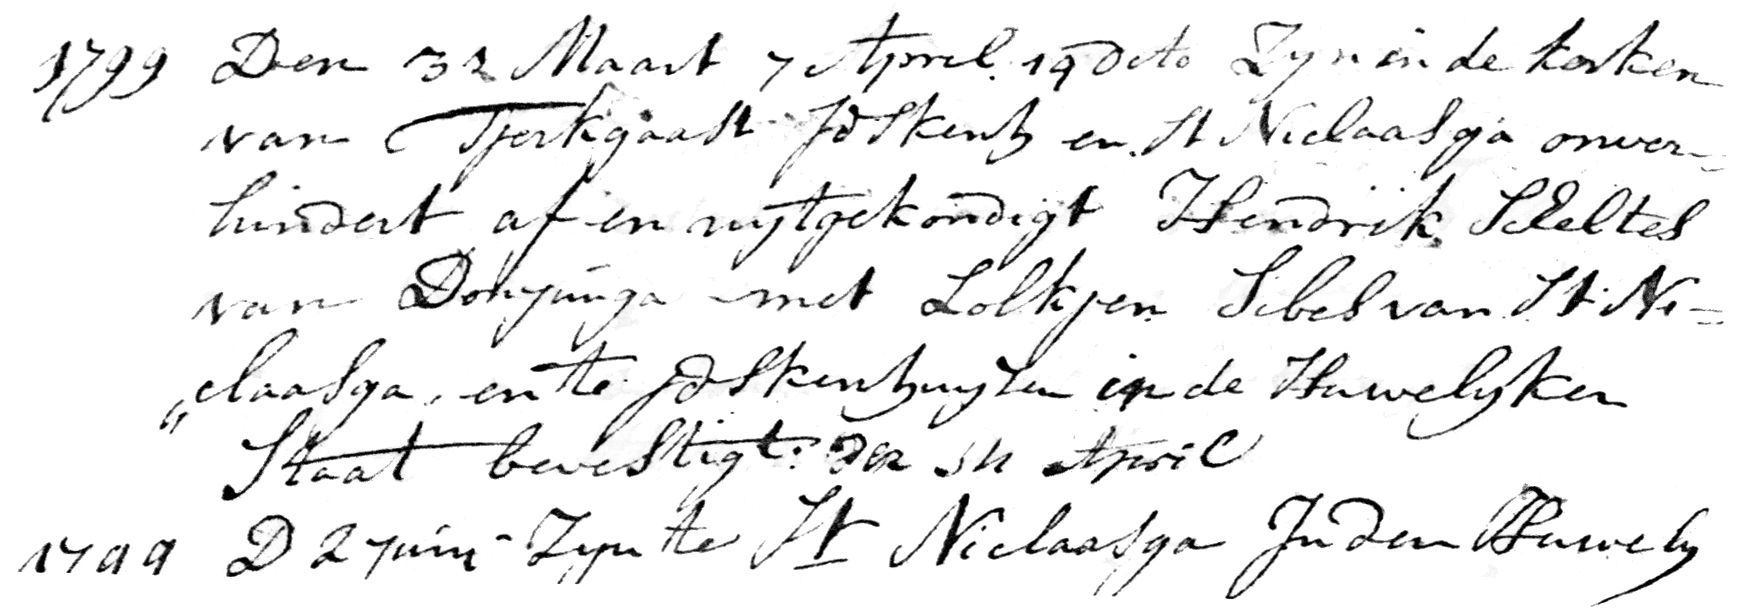 1799 Den 31 Maart 7 April 14 dito Zyn in de kerken
van Tjerkgaast Idskenh en St Niclaasga onver-
hindert af en uytgekondigt Hendrik Scheltes
van Donjunga met Lolkjen Sibes van St. Ni=
„claasga, en te Idskenhuyzen in de Huwelyken
Staat bevestigt den April
1799 D 2 Juny Zyn te St Niclaasga In den Huwely